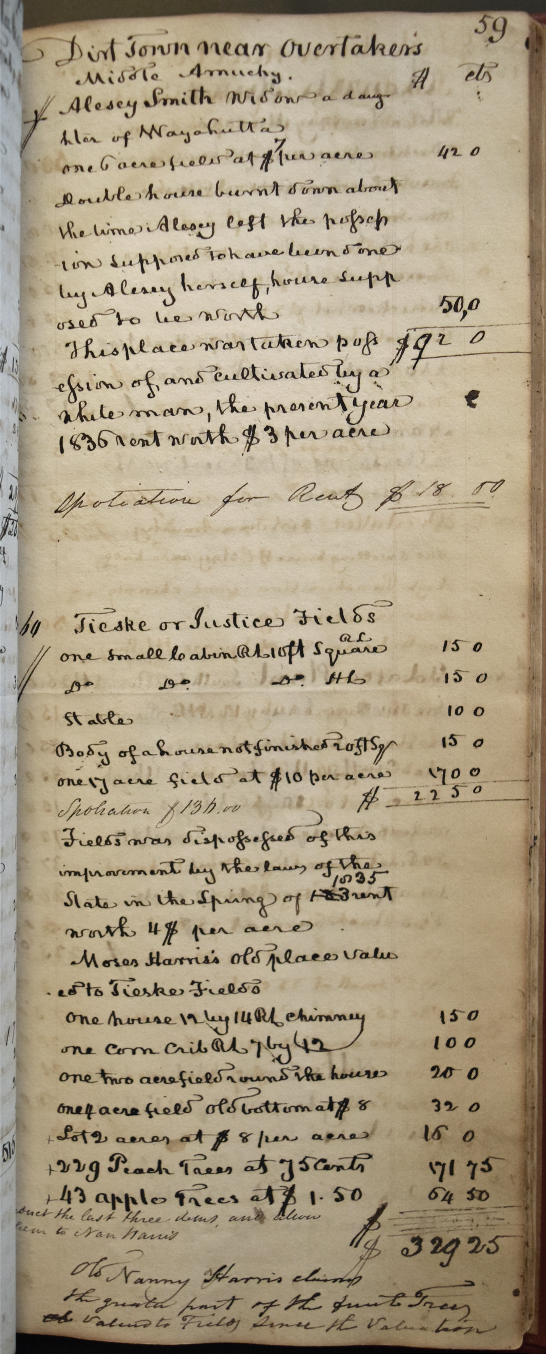 59
Dirt Town near Overtakers
Middle Armuchy. $ cts
Alesey Smith Widow a daug
hter of Wayahutta
one 6 acre field at $7 per acre 42 0
Double house burnt down about
the time Alesey left the possess
ion supposed to have been done
by Alesey herself, house supp
osed to be worth 50,0
This place was taken poss $92 0
ession of, and cultivated by a
white man, the present year
1836 rent worth $3 per acre
Spoliation for Rent $ 18.00
60 Tieske or Justice Fields
one small Cabin RL 10ft Square 15 0
Do Do Do HL 15 0
Stable 10 0
Body of a house not finished 20ft Sqr 15 0
one 17 acre field at $10 per acre 170 0
Spoliation $136.00 $ 225 0
Fields was dispossessed of this
improvement by the laws of the
State in the Spring of 1835 rent
worth 4$ per acre
Moses Harris's old place valu
ed to Tieske Fields
One house 12 by 14 RL chimney 15 0
one corn crib RL 7 by 12 10 0
one two acre field round the house 20 0
one 4 acre field old bottom at $ 8 32 0
+Lot 2 acres at $ 8 per acre 16 0
+229 Peach Trees at 75 Cents 171 75
+43 apple Trees at $ 1.50 64 50
the last three items, and allow
them to Nan Harris $
$ 329 25
Old Nanny Harris claims
the greater part of the fruit Trees
valued to Fields since the valuation